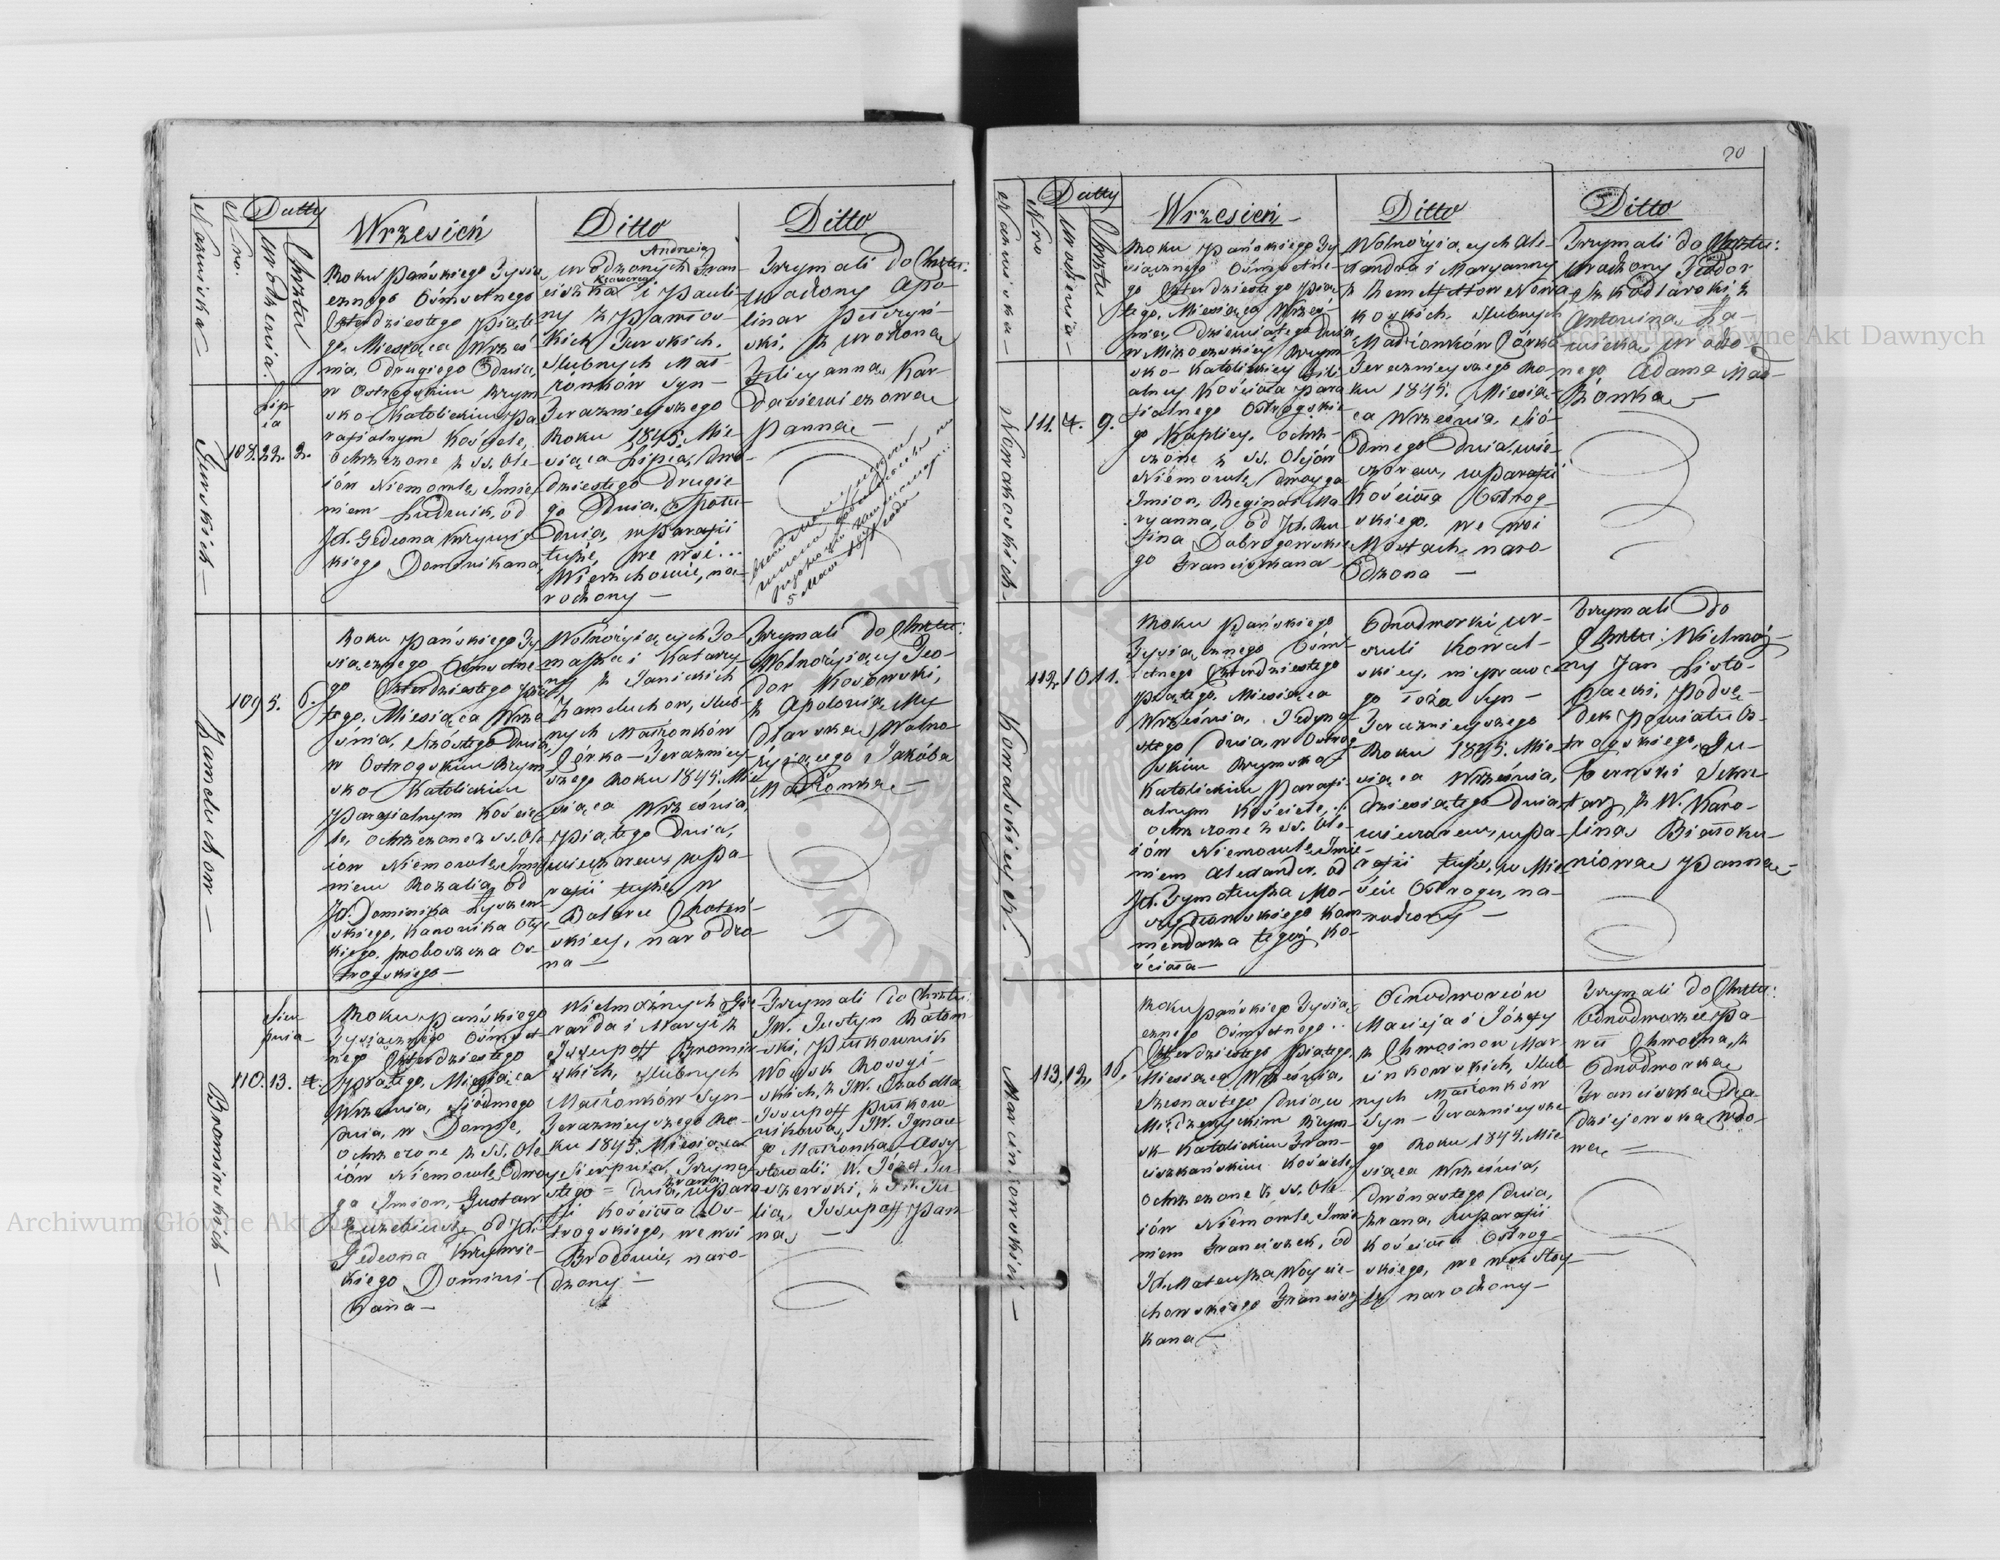 Datty
Nazwiska
Nro.
Urodzenia.
Chrztu
Wrzesień
Ditto
Ditto
Gurskich —
108.
Lip-
ia
22.
2.
Roku Pańskiego Tysią
cznego Ośmsetnego
Czterdziestego Piąte
go, Miesiąca Wrześ
nia, drugiego Dnia,
w Ostrogskim Rzym
sko-Katolickim Pa
rafialnym Kościele,
ochrzczone z SS. Ole-
iów Niemowle, Imie
niem Ludwik, od
Jx. Gedeona Krzywic
kiego Dominikana
Andrzeia
urodzonych Fran-
ciszka i Pauli-
ny z Pawłow-
kich Gurskich,
Slubnych Mał-
żonków Syn —
Terazniejszego
Roku 1845. Mie
siąca Lipca, dwó
dziestego drugie
go Dnia, z Połu
dnia, w Parafii
tuyże, we wsi...
Wierzchowie, na-
rodzony —
Trzymali do Chrztu:
Urodzony Apo-
linar
ski, z Urodzoną
Felicyanną Kar-
dasiewiczową
Panną —
Kameduchow —
109.
5.
6.
Roku Pańskiego Ty
siącznego Ośmsetne
go Czterdziestego Pią
tego, Miesiąca Wrze
śnia, Szóstego Dnia,
w Ostrogskim Rzym
sko Katolickim
Parafialnym Kości
le, ochrzczone z SS. Ole
iów Niemowle, Imie
niem Rozalia, od
Jx. Dominika Łyszkow
skiego, Kanonika Oły
kiego, Proboszcza Os-
trogskiego —
Wolnożyiących To-
masza i Katarzy-
ny z Janickich
Kameduchow, Slub-
nych Małżonków
Córka — Terazniey
szego Roku 1845. Mie
siąca Wrześnią,
Piątego Dnia,
wieczorem, w Pa-
rafii tuyże, w
Batarce Choteń-
skiey, narodzo
na —
Trzymali do Chrztu:
Wolnożyiący Teo-
dor Kosowski,
z Apolonią My
dlarską, Wolno
żyiącego Jakóba
Małżonką —
Bromirskich —
110.
Sier
pnia
13.
7.
Roku Pańskiego
Tysiącznego Ośmset-
nego Czterdziestego
Piątego, Miesiąca
Wrześnią, Siódmego
Dnia, w Domie,
ochrzczone z SS. Ole
iów Niemowle, dwoy
ga Imion, Gustaw
Euzebiusz, od Jx.
Gedeona Krzywic-
kiego Domini-
kana —
Wielmożnych Ge
rarda i Maryi z
Jssupoff Bromir
skich, Slubnych
Małżonków Syn —
Terazniejszego Ro-
ku 1845. Miesiąca
Sierpnia, Trzyna
stego Dnia, z rana, w Para
fii Kościoła Os-
trogskiego, we wsi
Brodowie, naro-
dzony —
Trzymali do Chrztu:
JW. Justyn Ratom
ski, Pułkownik
Woysk Rossyi-
skich, z JW. Izabellą
Jssupoff Pułkow-
nikową, JW. Ignace
go Małżonką — Assy-
stowali: W. Józef Ju-
szewski, z JW. Ju-
lią Jssupoff Pan-
ną —
20
Datty
Nazwiska —
Nro
Urodzenia —
Chrztu
Wrzesień —
Ditto
Ditto
Nowakowskich —
111.
7.
9.
Roku Pańskiego Ty
siącznego Ośmsetne-
go Czterdziestego Pią
tego, Miesiąca Wrześ-
nia, Dziewiątego Dnia,
w Mizoczskiey Rzym
sko-Katolickiey Fili-
alney Kościoła Para
fialnego Ostrogskie
go Kaplicy, ochrz-
czone z SS. Oleiów
Niemowle, dwoyga
Imion, Regina Ma
ryanna, od Jx. Ru-
fina Dobrogowskie
go Franciszkana —
Wolnożyiących Ale-
xandra i Maryanny
z Nowa
kowskich, Slubnych
Małżonków Córka
Terazniejszego Ro-
ku 1845. Miesią-
ca Wrześnią, Sió-
dmego Dnia, wie-
czorem, w Parafii
Kościoła Ostrog-
skiego, we wsi
Mostach, naro-
dzona —
Trzymali do Chrztu:
Urodzony Teodor
Szkodlarski, z
Antoniną
Urodzo-
nego Adama Mał-
żonką —
Kowalskiey, et.
112.
10.
11.
Roku Pańskiego
Tysiącznego Ośm-
setnego Czterdziestego
Piątego, Miesiąca
Wrześnią, Jedyna
stego Dnia, w Ostrog
skim Rzymsko-
Katolickim Parafi-
alnym Kościele,
ochrzczone z SS. Ole-
iów Niemowle, Imie-
niem Alexander, od
Jx. Tymoteusza Mo-
szydłowskiego Kom
mendarza tegoż Ko-
ścioła —
Odnodworki Ur-
szuli Kowal-
skiey, nieprawe
go łoża Syn —
Terazniejszego
Roku 1845. Mie
siąca Wrześnią,
dziesiątego Dnia,
wieczorem, w Pa-
rafii tuyże, w Mie
ście Ostrogu, na-
rodzony —
Trzymali do
Chrztu: Wielmoż-
ny Jan Listo-
padzki, Podsę-
dek Powiatu Os-
trogskiego, Gu-
bernski Sekre
tarz, z W. Karo-
liną Białoku-
niową Panną —
Marcinkowskich —
113.
12.
16.
Roku Pańskiego Tysią
cznego Ośmsetnego..
Czterdziestego Piątego,
Miesiąca Wrześnią,
Szesnastego Dnia, w
Międzyrzyckim Rzym
sko-Katolickim Fran-
ciszkańskim Kościele,
ochrzczone z SS. Ole-
iów Niemowle, Imie
niem Franciszek, od
Jx. Mateusza Woycie-
chowskiego Francisz
kana —
Odnodworców
Macieja i Józefy
z Chwosnow Mar-
cinkowskich, Slub-
nych Małżonków
Syn — Terazniejsze
go Roku 1845. Mie
siąca Wrześnią,
dwónastego Dnia,
z rana, w Parafii
Kościoła Ostrog-
skiego, we wsi Stoy-
łę narodzony —
Trzymali do Chrztu:
Odnodworzec Pa-
weł Chwosna, z
Odnodworką
Franciszką Ra-
dziejowską Wdo-
wą —
Archiwum Główne Akt Dawnych
Archiwum Główne Akt Dawnych